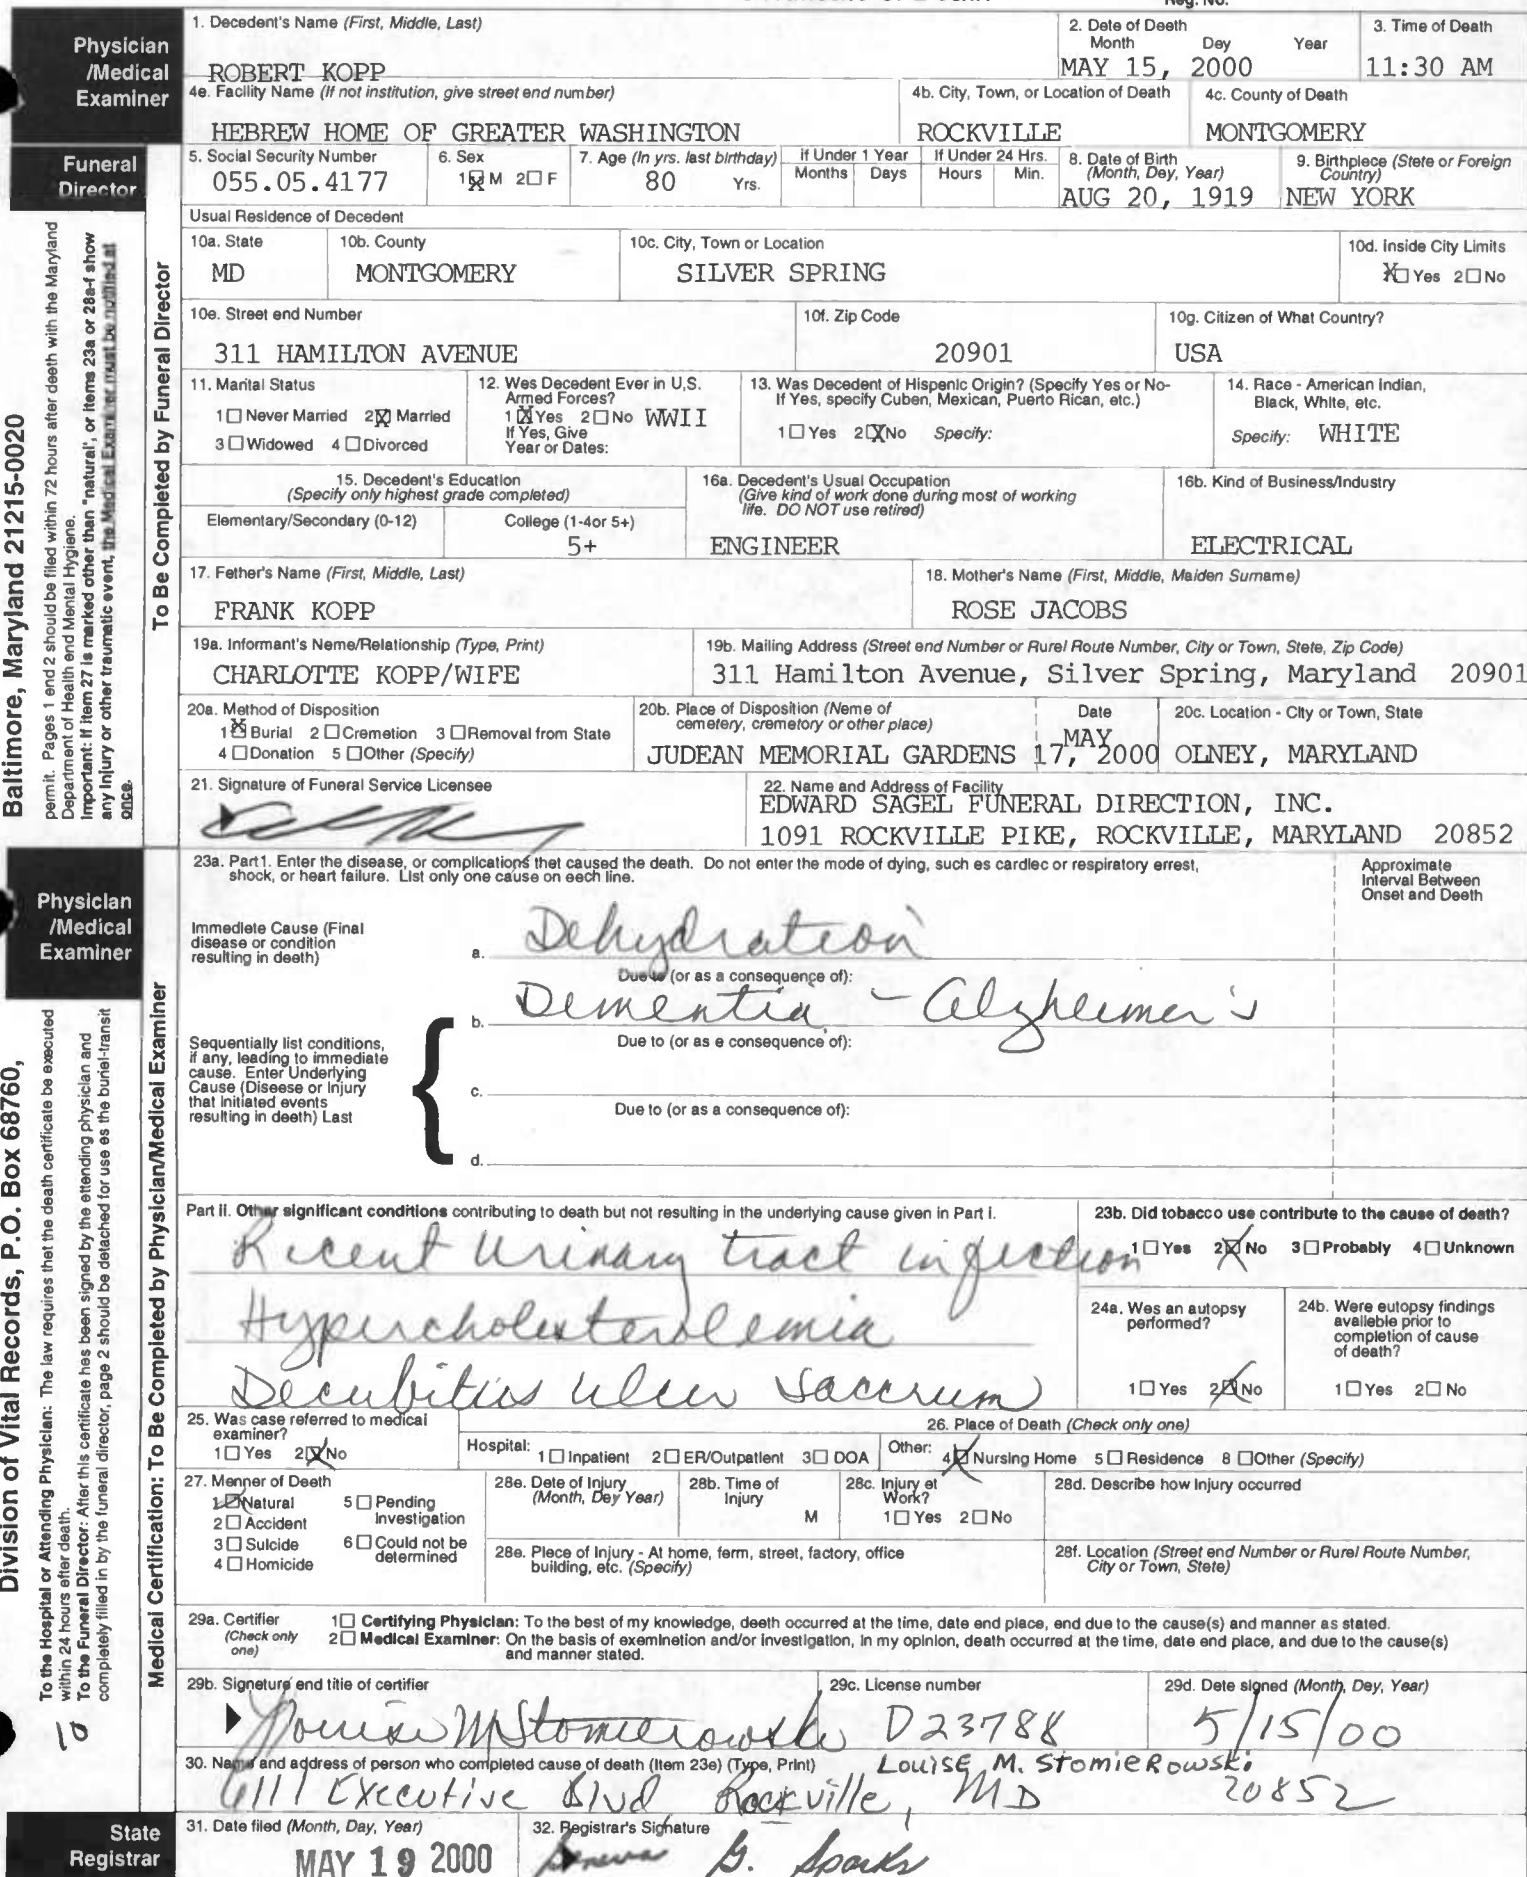 1. Decedent's Name (First, Middle, Last)
ROBERT KOPP
2. Date of Deeth
Month Dey Year
MAY 15, 2000
3. Time of Death
11:30 AM
Physician
/Medical
Examiner
4e. Facility Name (If not institution, give street end number)
HEBREW HOME OF GREATER WASHINGTON
4b. City, Town, or Location of Death
ROCKVILLE
4c. County of Death
MONTGOMERY
Funeral
Director
5. Social Security Number
055.05.4177
6. Sex
1☒ M 2☐ F
7. Age (In yrs. last birthday)
80 Yrs.
If Under 1 Year
Months Days
If Under 24 Hrs.
Hours Min.
8. Date of Birth
(Month, Day, Year)
AUG 20, 1919
9. Birthplece (Stete or Foreign
Country)
NEW YORK
Usual Residence of Decedent
10a. State
MD
10b. County
MONTGOMERY
10c. City, Town or Location
SILVER SPRING
10d. Inside City Limits
X☐ Yes 2☐ No
10e. Street end Number
311 HAMILTON AVENUE
10f. Zip Code
20901
10g. Citizen of What Country?
USA
11. Marital Status
1☐ Never Married 2☒ Married
3☐ Widowed 4☐ Divorced
12. Wes Decedent Ever in U.S.
Armed Forces?
1☒ Yes 2☐ No WWII
If Yes, Give
Year or Dates:
13. Was Decedent of Hispenic Origin? (Specify Yes or No-
If Yes, specify Cuben, Mexican, Puerto Rican, etc.)
1☐ Yes 2☒ No Specify:
14. Race - American Indian,
Black, White, etc.
Specify: WHITE
15. Decedent's Education
(Specify only highest grade completed)
Elementary/Secondary (0-12) College (1-4or 5+)
5+
16a. Decedent's Usual Occupation
(Give kind of work done during most of working
life. DO NOT use retired)
ENGINEER
16b. Kind of Business/Industry
ELECTRICAL
17. Fether's Name (First, Middle, Last)
FRANK KOPP
18. Mother's Name (First, Middle, Maiden Surname)
ROSE JACOBS
19a. Informant's Neme/Relationship (Type, Print)
CHARLOTTE KOPP/WIFE
19b. Mailing Address (Street end Number or Rurel Route Number, City or Town, Stete, Zip Code)
311 Hamilton Avenue, Silver Spring, Maryland 20901
20a. Method of Disposition
1☒ Burial 2☐ Cremetion 3☐ Removal from State
4☐ Donation 5☐ Other (Specify)
20b. Place of Disposition (Neme of
cemetery, cremetory or other place)
JUDEAN MEMORIAL GARDENS
Date
MAY
17, 2000
20c. Location - City or Town, State
OLNEY, MARYLAND
21. Signature of Funeral Service Licensee
22. Name and Address of Facility
EDWARD SAGEL FUNERAL DIRECTION, INC.
1091 ROCKVILLE PIKE, ROCKVILLE, MARYLAND 20852
To Be Completed by Funeral Director
Baltimore, Maryland 21215-0020
permit. Pages 1 end 2 should be filed within 72 hours after deeth with the Maryland
Department of Heelth end Mentel Hygiene.
Important: If item 27 is marked other than "natural', or items 23a or 28a-f show
any injury or other traumatic event, the Medical Examiner must be notified at
once.
Physician
/Medical
Examiner
23a. Part1. Enter the disease, or complications thet caused the death. Do not enter the mode of dying, such es cardiec or respiratory errest,
shock, or heart failure. List only one cause on eech line.
Approximate
Interval Between
Onset and Deeth
Immediete Cause (Final
disease or condition
resulting in death)
a. Dehydration
Due to (or as a consequence of):
b. Dementia - Alzheimer's
Due to (or as e consequence of):
Sequentially list conditions,
if any, leading to immediate
cause. Enter Underlying
Cause (Diseese or Injury
that initiated events
resulting in deeth) Last
c.
Due to (or as a consequence of):
d.
Part ii. Other significant conditions contributing to death but not resulting in the underlying cause given in Part i.
Recent Urinary tract infection
Hypercholesterolemia
Decubitius ulcer Saccrum
23b. Did tobacco use contribute to the cause of death?
1☐ Yes 2☒ No 3☐ Probably 4☐ Unknown
24a. Wes an autopsy
performed?
1☐ Yes 2☒ No
24b. Were eutopsy findings
aveileble prior to
completion of cause
of death?
1☐ Yes 2☐ No
25. Was case referred to medical
examiner?
1☐ Yes 2☒ No
26. Place of Death (Check only one)
Hospital: 1☐ Inpatient 2☐ ER/Outpatlent 3☐ DOA
Other: 4☒ Nursing Home 5☐ Residence 8☐ Other (Specify)
27. Menner of Deeth
1☒ Natural 5☐ Pending
Investigation
2☐ Accident
3☐ Suicide 6☐ Could not be
determined
4☐ Homicide
28e. Dete of Injury
(Month, Dey Year)
28b. Time of
Injury
M
28c. Injury et
Work?
1☐ Yes 2☐ No
28d. Describe how Injury occurred
28e. Plece of Injury - At home, ferm, street, factory, office
building, etc. (Specify)
28f. Location (Street end Number or Rurel Route Number,
City or Town, Stete)
29a. Certifier
(Check only
one)
1☐ Certifying Physician: To the best of my knowledge, deeth occurred at the time, date end place, end due to the cause(s) and manner as stated.
2☐ Medical Examiner: On the basis of exeminetion and/or investigation, in my opinion, death occurred at the time, date end place, and due to the cause(s)
and manner stated.
29b. Signeture end title of certifier
Louise M Stomierowski
29c. License number
D23788
29d. Dete signed (Month, Dey, Year)
5/15/00
30. Name and address of person who completed cause of death (Item 23e) (Type, Print)
Louise M. Stomierowski
6111 Executive Blvd Rockville, MD 20852
Medical Certification: To Be Completed by Physician/Medical Examiner
Division of Vital Records, P.O. Box 68760,
To the Hospital or Attending Physician: The law requires that the death certificate be executed
within 24 hours efter death.
To the Funeral Director: After this certificate hes been signed by the ettending physician and
completely filled in by the funeral director, page 2 should be detached for use es the buriel-transit
10
State
Registrar
31. Date filed (Month, Day, Year)
MAY 19 2000
32. Registrar's Signature
Geneva G. Sparks